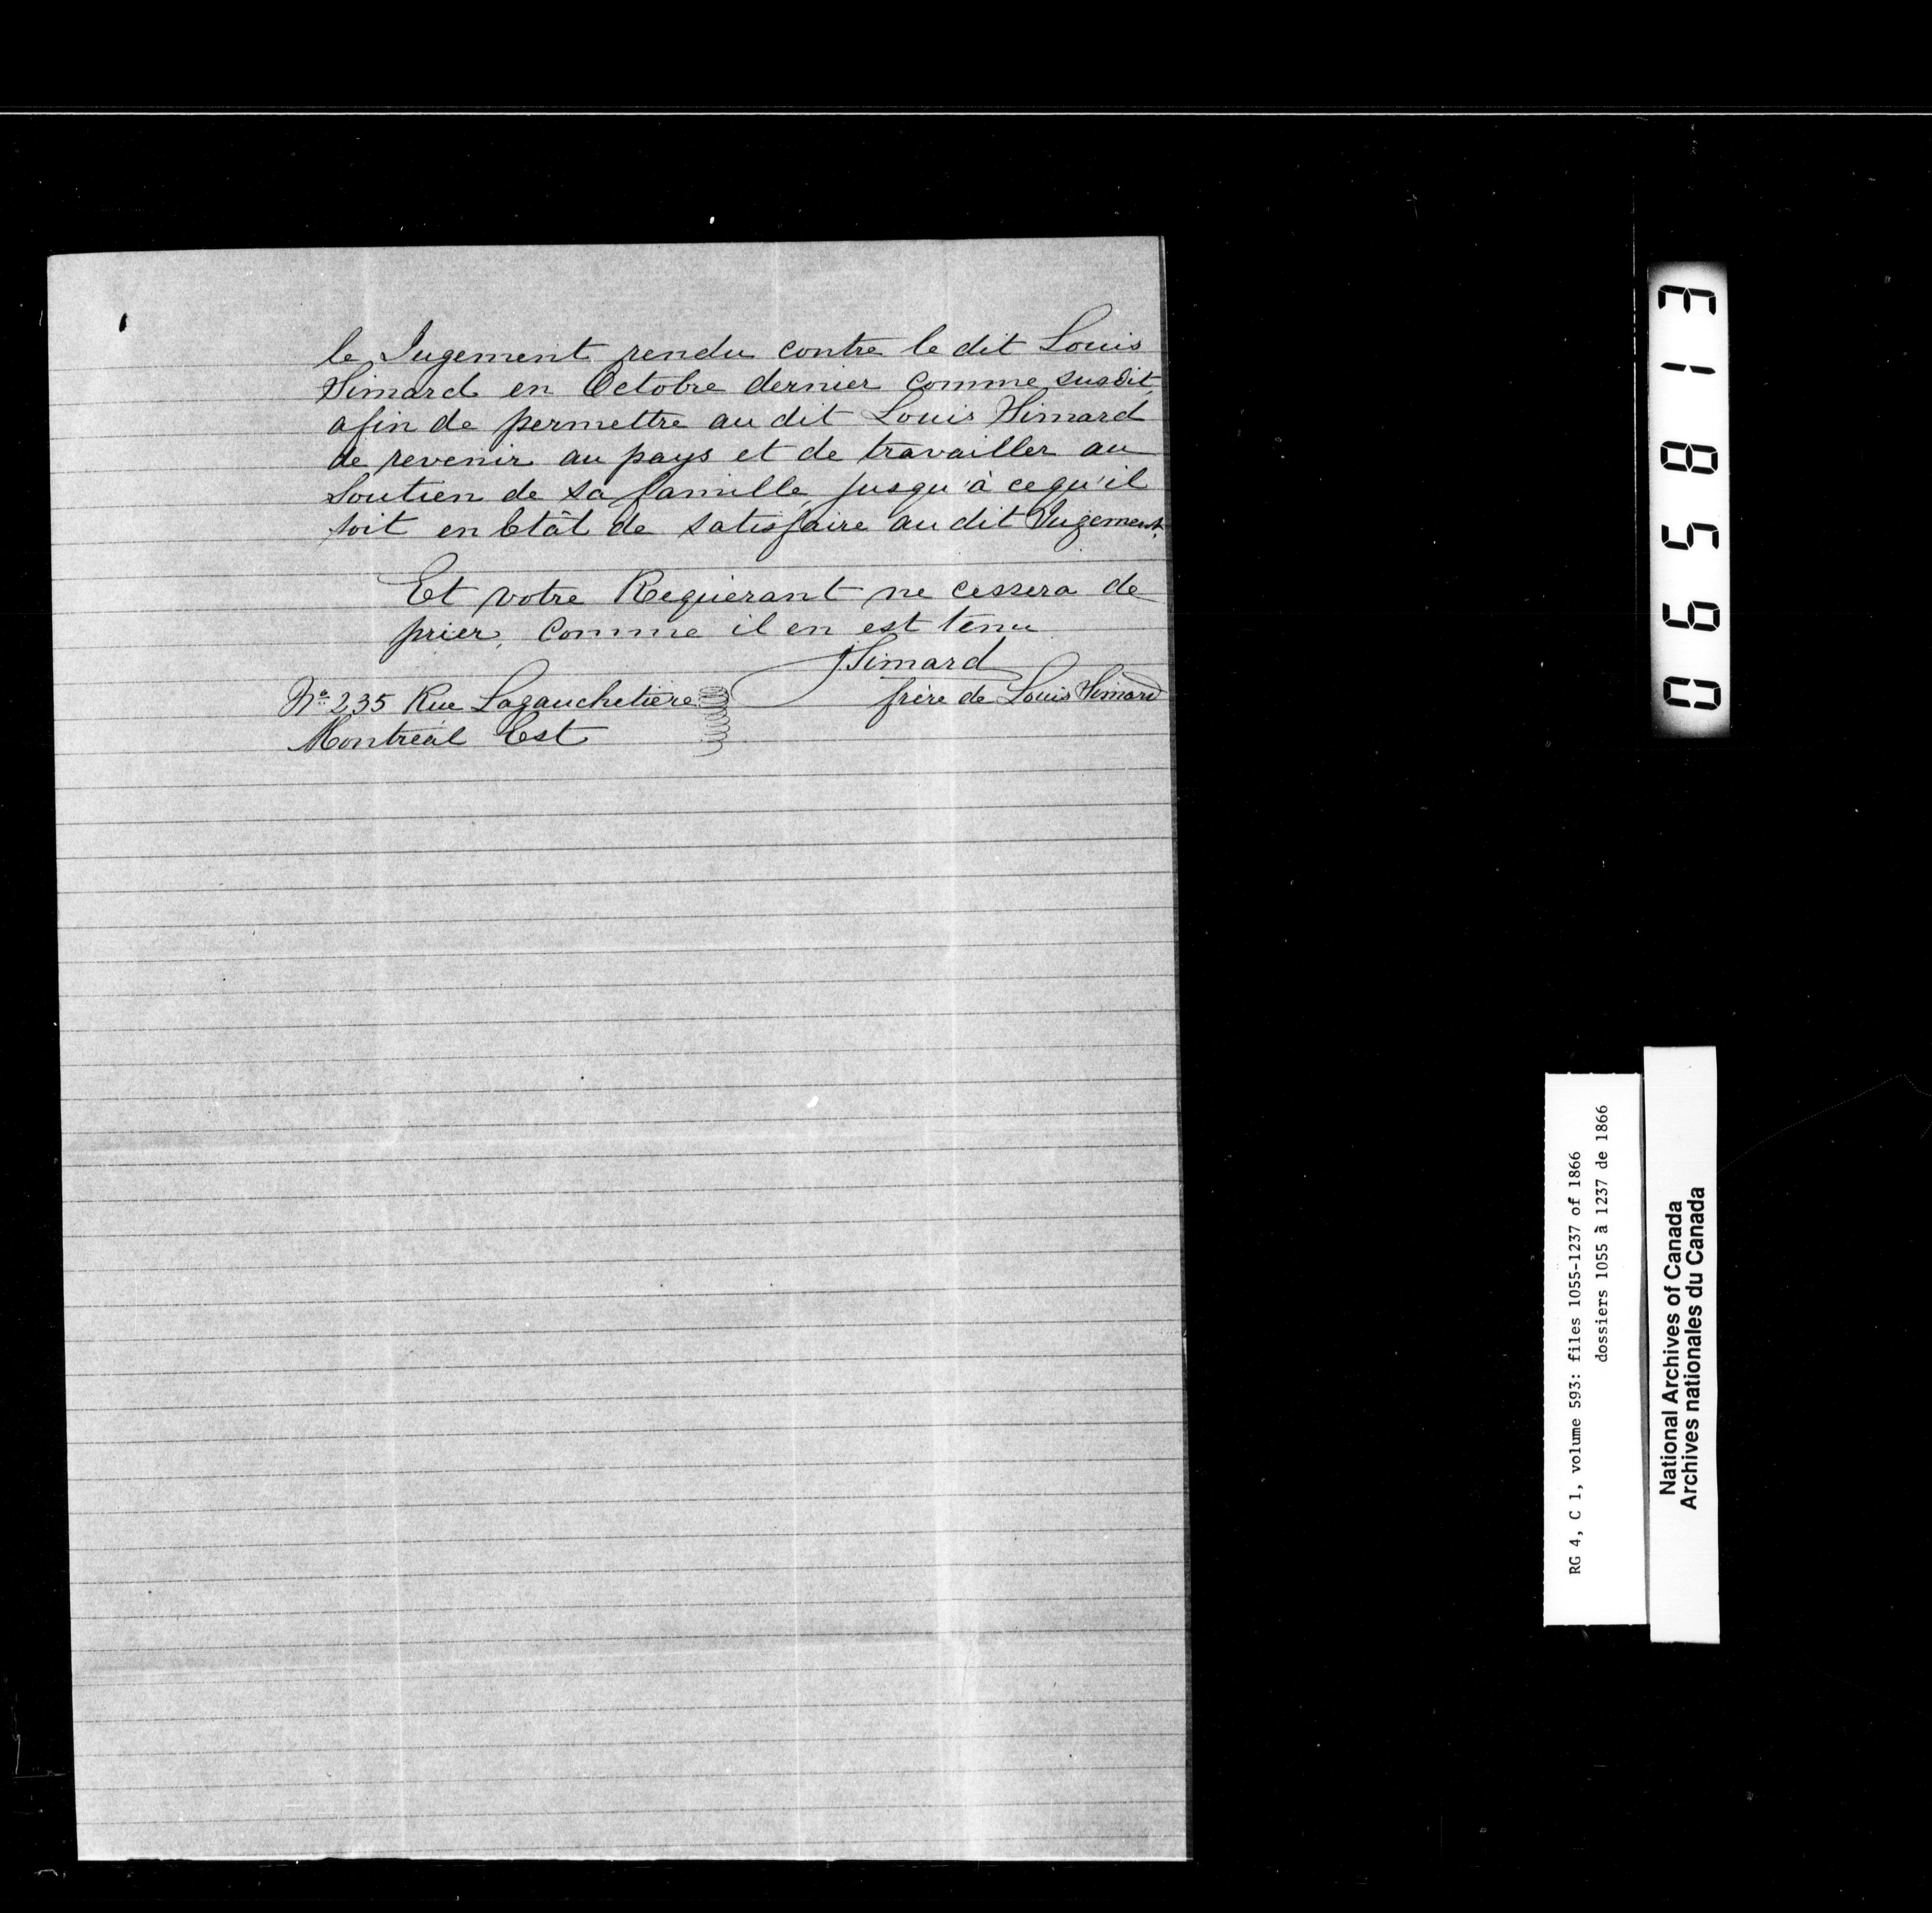 le Jugement rendu contre le dit Louis
Simard en Octobre dernier comme susdit,
afin de permettre au dit Louis Simard
de revenir au pays et de travailler au
Soutien de sa famille, jusqu'à cequ'il
soit en Etât de satisfaire au dit Jugement.
Et votre Requérant ne cessera de
prier, comme il en est tenu
J. Simard
frère de Louis Simard
No 235 Rue Lagauchetière
Montréal Est
065813
RG 4, C 1, volume 593: files 1055-1237 of 1866
dossiers 1055 à 1237 de 1866
National Archives of Canada
Archives nationales du Canada